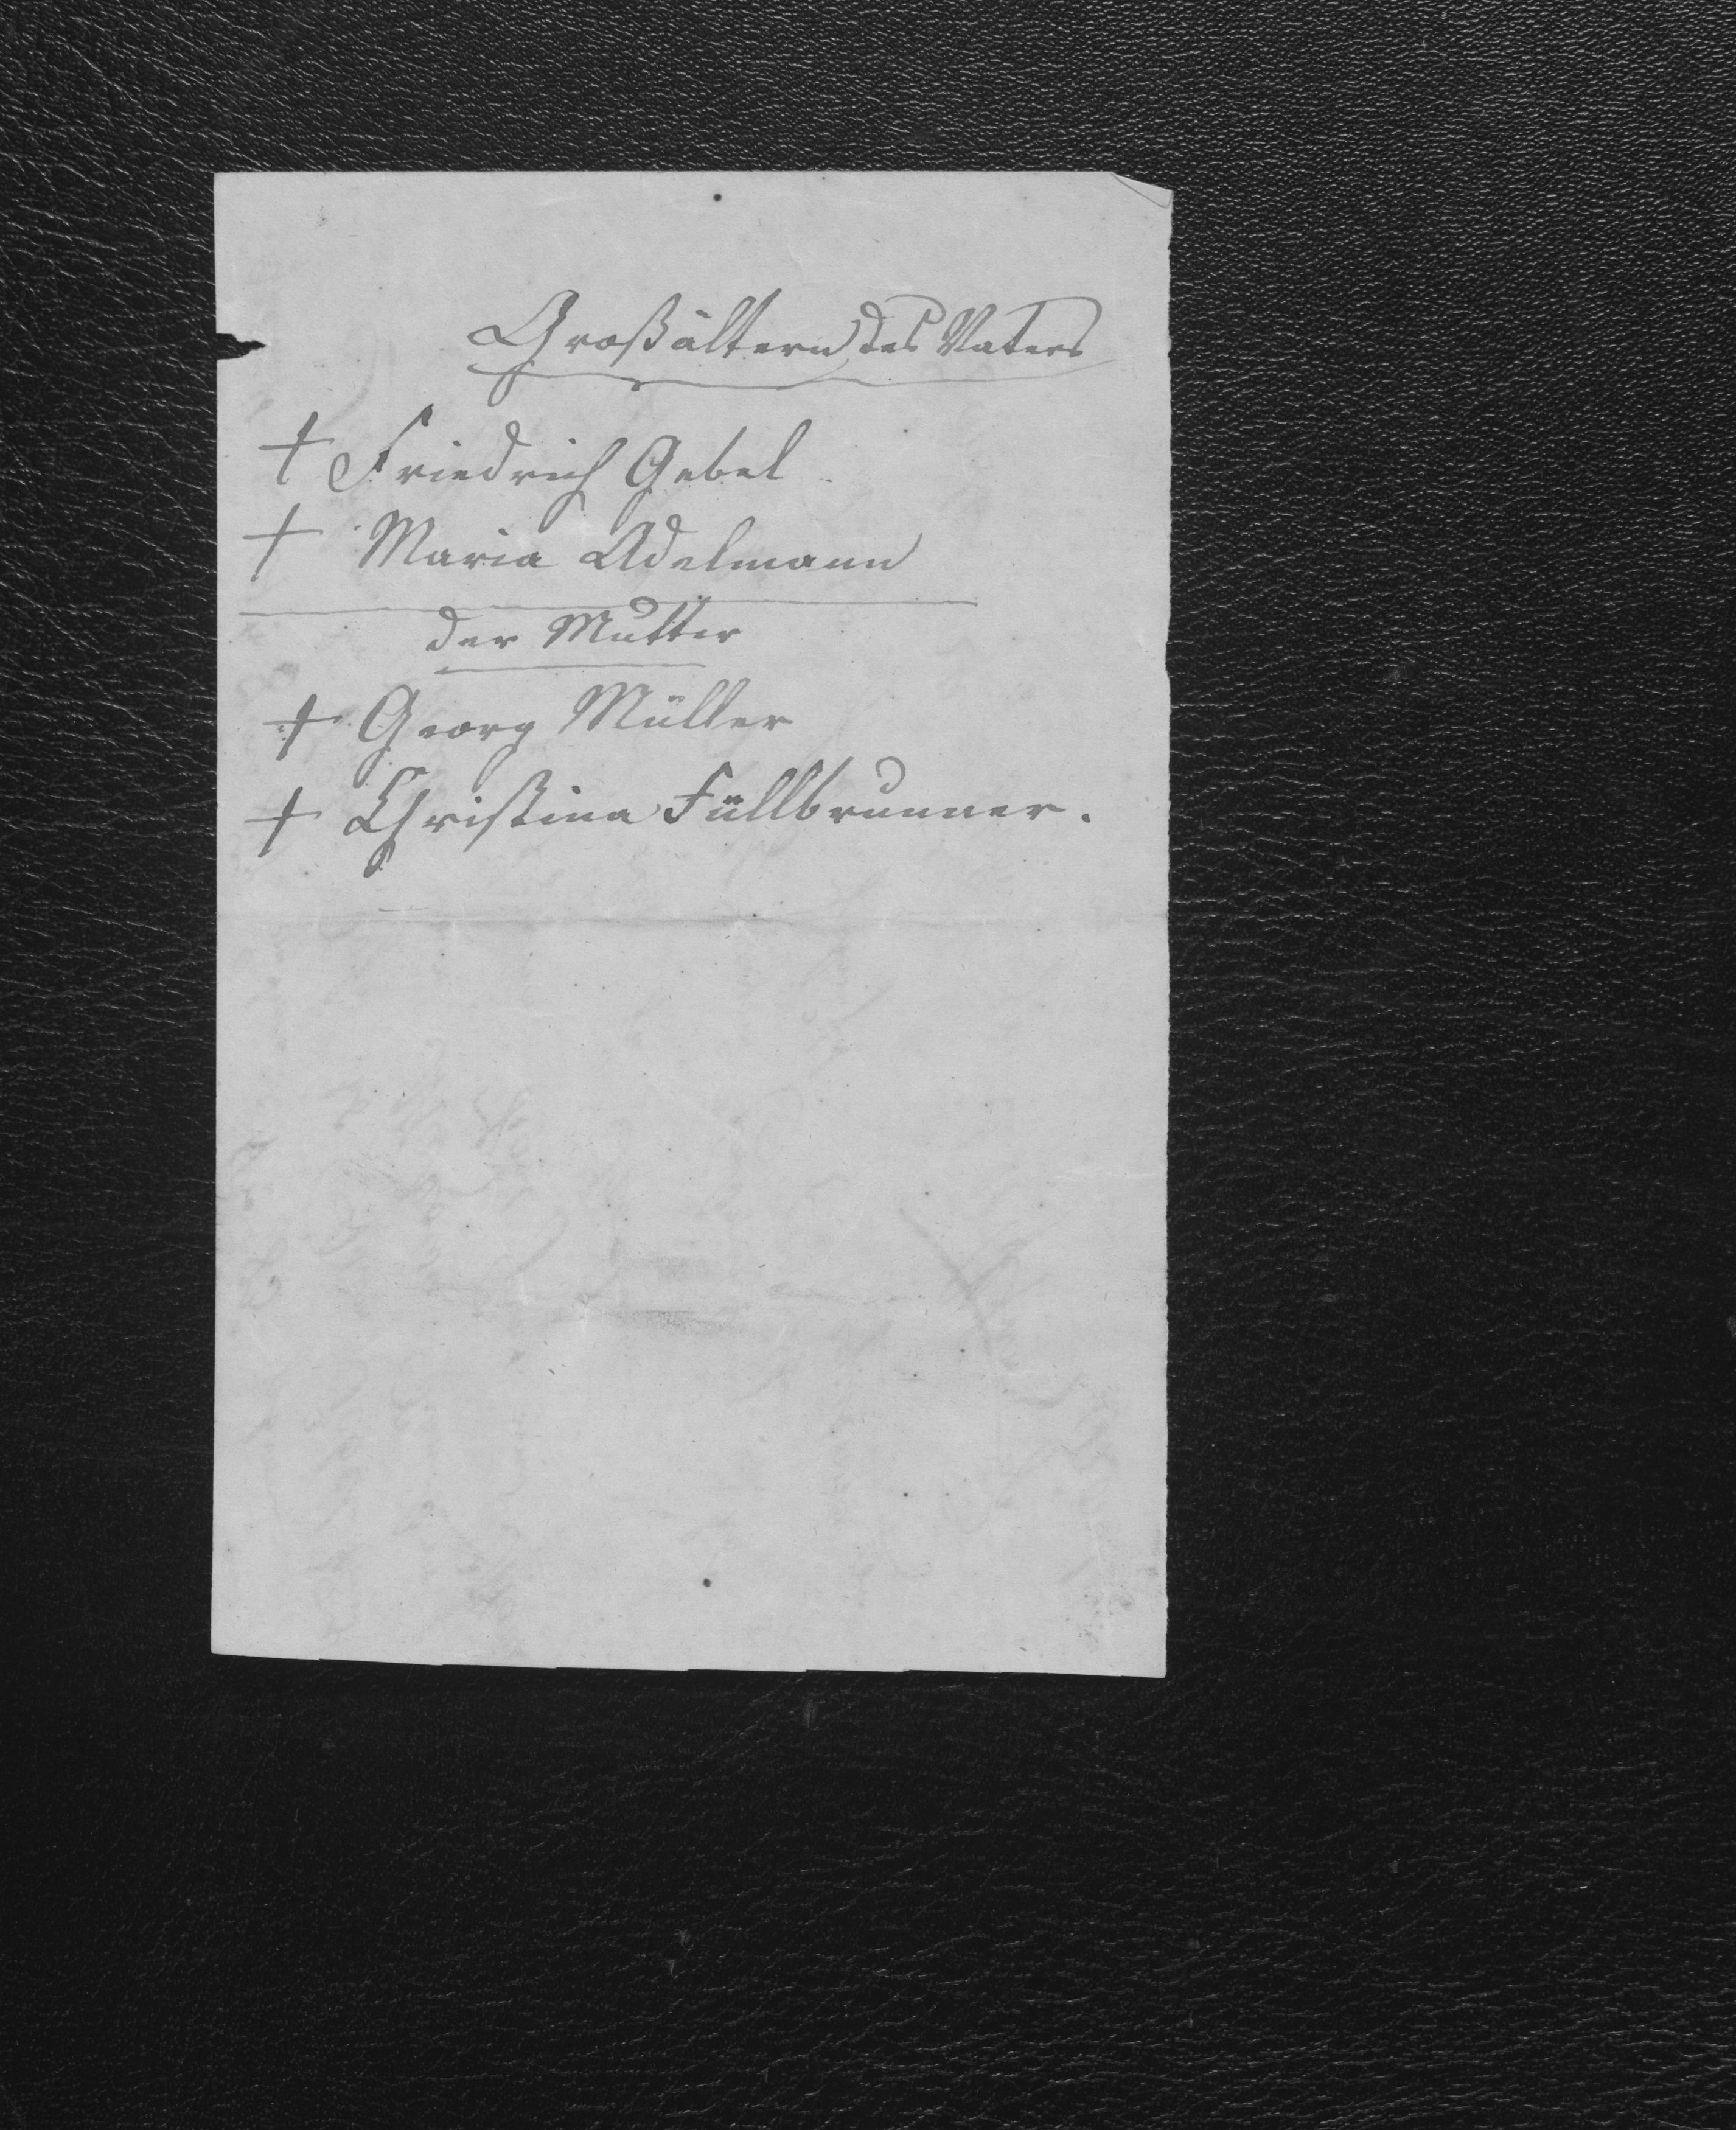 Großältern des Vaters
† Friedrich Gebel
† Maria Adelmann
der Mutter
† Georg Müller
† Christina Füllbrunner.